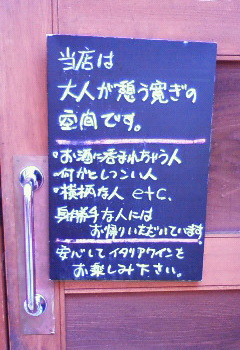 当店は
大人が憩う寛ぎの
空間です。
・お酒に呑まれちゃう人
・何かとしつこい人
・横柄な人 etc.
身勝手な人には
お帰りいただいています
安心してイタリアワインを
お楽しみ下さい。